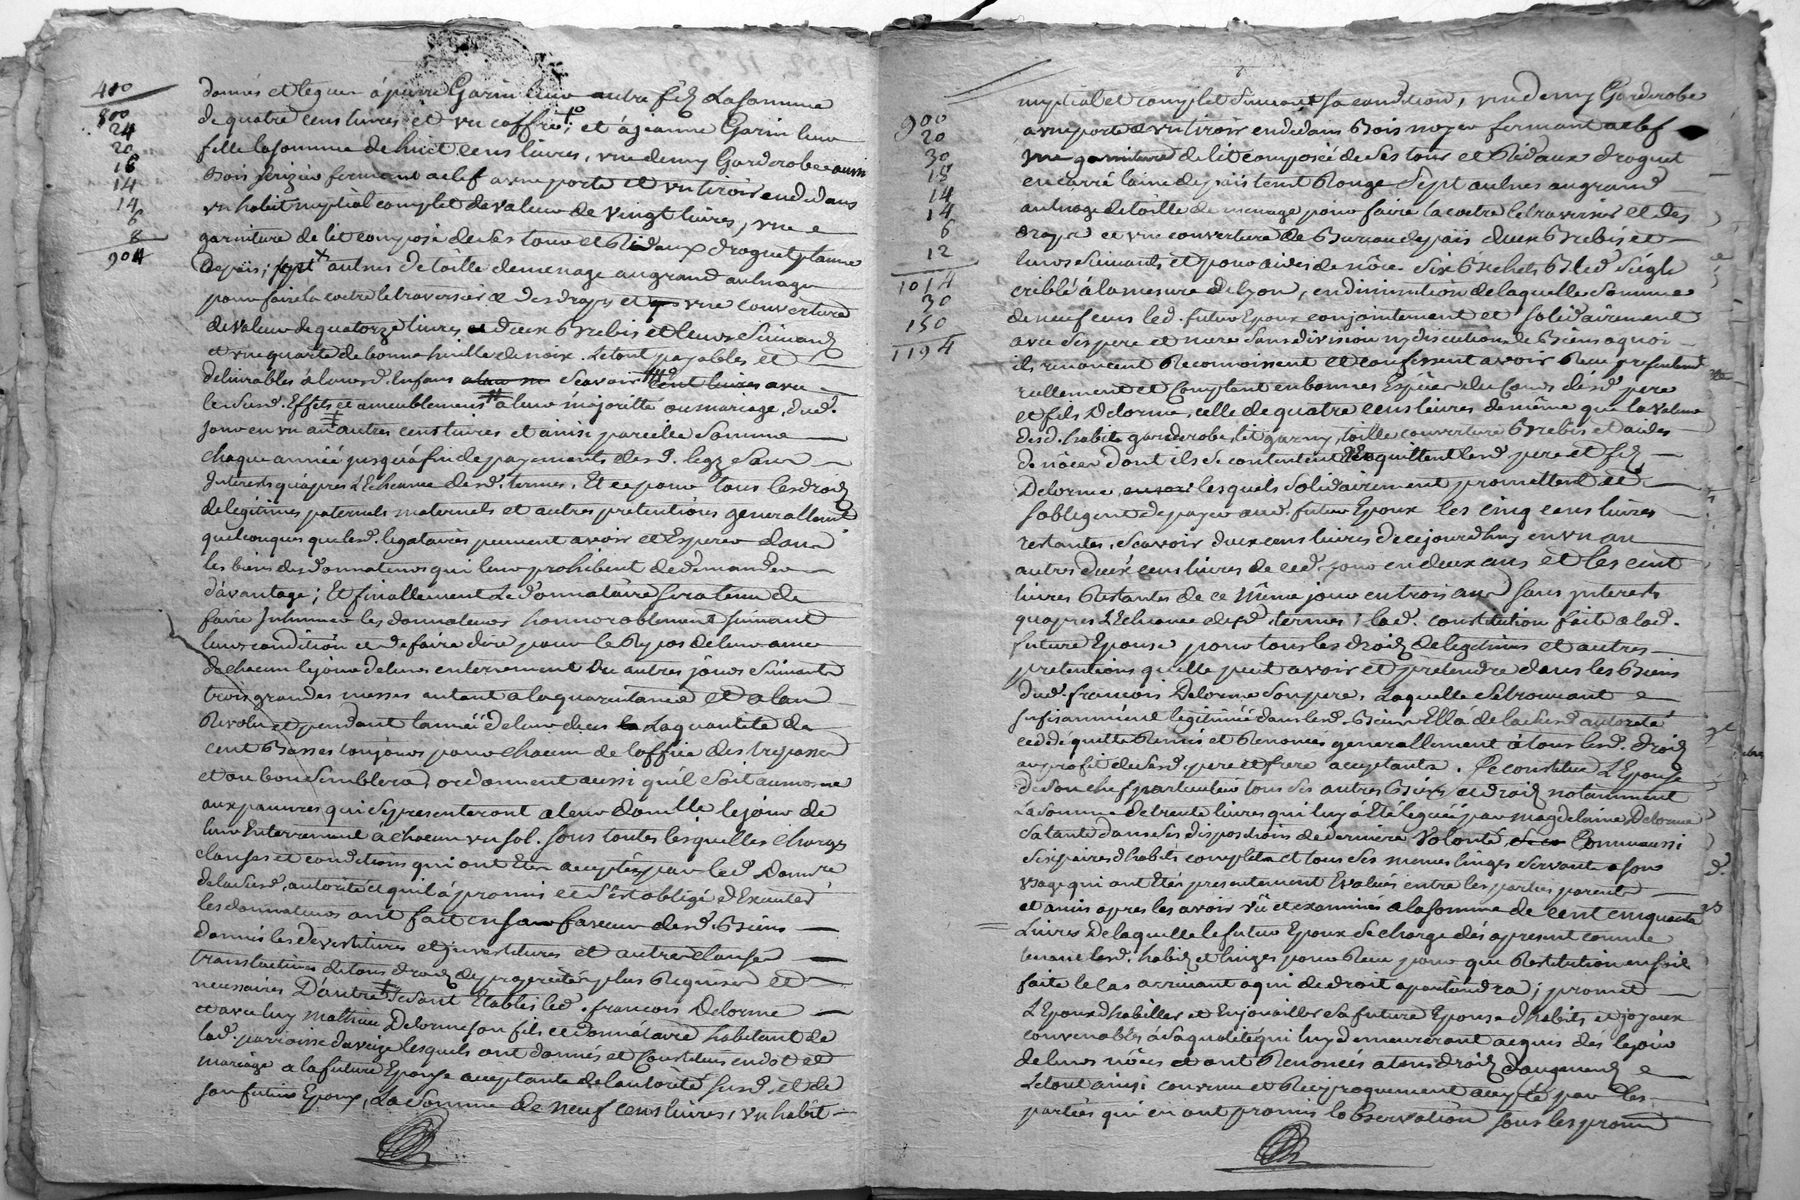 400
800
24
20
16
14
14
6
8
904
donnés et leguer à pierre Garin leur autre fils la somme
de quatre cens livres et un coffre; et à jeanne Garin leur
fille la somme de huit cens livres, une demy Garderobe aussi
bois serizier fermant a clef a une porte et un tiroir en dedans
un habit nuptial complet de valeur de vingt livres, une
garniture de lit composé de ses tour et Rideaux droguet
depaïs; sept aulnes de toille de menage au grand aulnage
pour faire la coetre le traversier & des draps et une couverture
de valeur de quatorze livres deux Brebis et leurs suivants
et une quarte de bonne huille de noix. Le tout payables et
delivrables à leurs d. enfans scavoir cent livres avec
les susd. Effets et ameublement à leur majorité ou mariage, dud.
jour en un an autres cens livres et ainsi pareille somme
chaque année jusqu'a fin de payements desd. legz sans
Interests qu'apres l'Echeance desd. termes. Et ce pour tous les droits
de légitimes paternels maternels et autres pretentions generallement
quelconques que lesd. legataires peuvent avoir et Esperer dans
les biens desd donnateurs qui leur prohibent de demander
d'avantage; Et finallement le donnataire sera tenu de
faire Inhumer les donnateurs honnorablement suivant
leur condition et de faire dire pour le Repos de leur ame
de chacun le jour de leurs enterrement ou autres jours suivants
trois grandes messes autant a la quarantaine et a l'an
Revolu et pendant l'année de leur deces la quantité de
cent Basses toujours pour chacun de l'office des trepassés
et ou bon semblera, ordonnent aussi qu'il soit aumosné
aux pauvres qui se presenteront a leur domille le jour de
leur Enterrement a chacun un sol. Sous toutes lesquelles charges
clauses et conditions qui ont étés acceptés par led. Donn.re
de la susd. autorité et qu'il à promis et s'est obligé d'Executer
les donnateurs ont fait en sa faveur desd. Biens
donnés les devestitures et jnvestitures et autres clauses
translatives de tous droits de proprietés plus Requises et
necessaires D'autre part Etablis led. francois Delorme
et avec luy mathieu Delorme son fils et donnataire habitant de
lad. parroisse d'aveize lesquels ont donnés et Constitués en dot et
mariage a la future Epouse acceptante de l'autorité susd. et de
son futur Epoux, La somme de neuf cens livres, un habit
900
20
30
15
14
14
6
12
1014
30
150
1194
nuptial et complet suivant sa condition, une demy Garderobe
a une porte & un tiroir en dedans Bois noyer fermant a clef
une garniture de lit composée de ses tour et Rideaux droguet
en carré laine depaïs teint Rouge sept aulnes au grand
aulnage de toille de menage pour faire la coetre le traversier et des
draps et une couverture de Bureau depaïs deux Brebis et
leurs suivants et pour aides de nôces six Bichets Bled seigle
criblé à la mesure de Lyon, en diminution de laquelle somme
de neuf cens led. futur Epoux conjointement et solidairement
avec ses pere et mere sans division ny discution de Biens a quoi
ils renoncent Reconnoissent et confessent avoir Receu presentement
réellement et Comptant en bonnes Espèces du Cours desd. pere
et fils Delorme, celle de quatre cens livres de même que la valeur
desd. habits garderobe, lit garny, toille couverture Brebis et aides
de nôces dont ils se contentent et en quittent lesd. pere et fils
Delorme, lesquels solidairement promettent et
s'obligent de payer aud. futur Epoux les cinq cens livres
restantes, scavoir deux cens livres de ce jourd'huy en un an
autres deux cens livres de ced. jour en deux ans et les cent
livres Restantes de ce même jour en trois ans sans jnterests
qu'apres l'Echeance desd. termes; lad. constitution faite a lad.
future Epouse pour tous les droits de legitimes et autres
pretentions qu'elle peut avoir et pretendre dans les Biens
dud. francois Delorme son pere, Laquelle se trouvant
suffisamment legitimée dans lesd. Biens Ella de la susd autorité
cedé quitté Remis et Renoncé generallement à tous lesd. droits
au profit de susd. pere et frere acceptants. Se constitue l'Epouse
de son chef particulier tous ses autres Biens et droits notamment
la somme de trente livres qui luy à été leguée par magdelaine Delorme
sa tante dans ses dispositions de derniere Volonté Comm aussi
ses paires d'habits complets et tous ses menus linges servants a son
usage qui ont étés presentement Evalués entre les parties parents
et amis apres les avoir vû et examinés a la somme de cent cinquante
Livres de laquelle le futur Epoux se charge dés apresent comme
tenant lesd. habits et linges pour Receu pour que Restitution en soit
faite le cas arrivant a qui de droit apartiendra; promet
L'Epoux d'habiller et Enjoailler sa future Epouse d'habits et joyaux
convenables à sa qualité qui luy demeureront acquis dés le jour
de leurs nôces et ont Renoncés a tous droits d'augment
Le tout ainsi convenu et Reciproquement accepté par les
parties qui en ont promis l'observation sous les prom